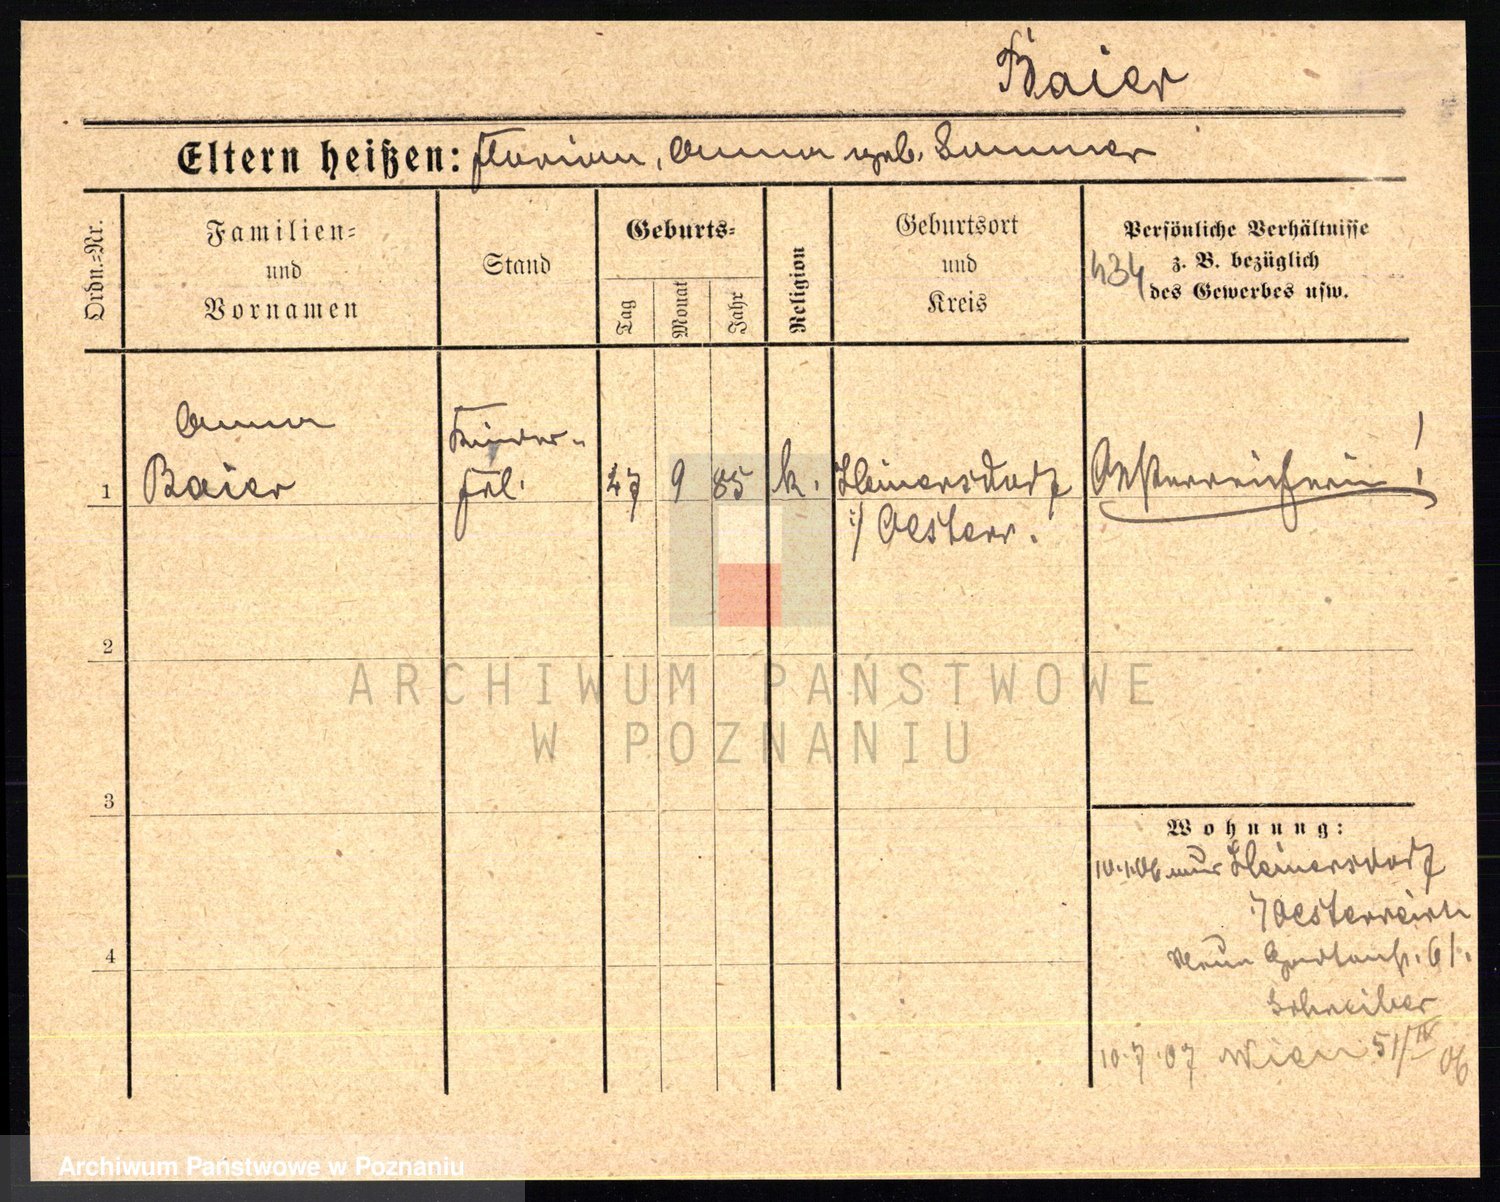 Baier
Eltern heißen: Florian, Anna geb. Sommer
Ordn.-Nr.
Familien-
und
Vornamen
Stand
Geburts-
Tag
Monat
Jahr
Religion
Geburtsort
und
Kreis
Persönliche Verhältnisse
z. B. bezüglich
des Gewerbes usw.
434
Anna
1 Baier
Kinder-
frl.
27 9 85 k. Heinersdorf
i/ Oesterr.
Oesterreicherin!
2
3
4
Wohnung:
10.1.06 Heinersdorf
i/Oesterreich
Gartenstr. 6
Schreiber
10.7.07 Wien 51/IV 06
ARCHIWUM PAŃSTWOWE
W POZNANIU
Archiwum Państwowe w Poznaniu